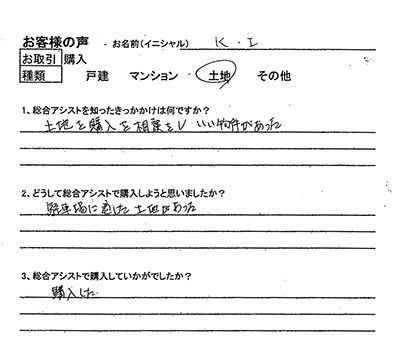 お客様の声 ・お名前(イニシャル) K . I
お取引 購入
種類 戸建 マンション 土地 その他
1、総合アシストを知ったきっかかけは何ですか?
土地を購入を相談をし いい物件があった
2、どうして総合アシストで購入しようと思いましたか?
駐車場に適した土地があった
3、総合アシストで購入していかがでしたか?
購入した